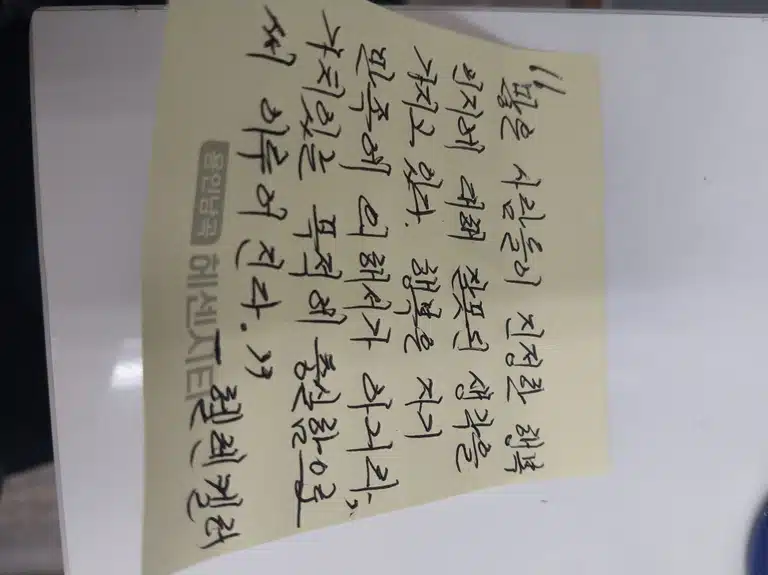 "많은 사람들이 진정한 행복
인지에 대해 잘못된 생각을
가지고 있다. 행복은 자기
만족에 의해서가 아니라,
가치있는 목적에 충실함으로
써 이루어진다."
- 헬렌켈러
용인남곡 헤센시티